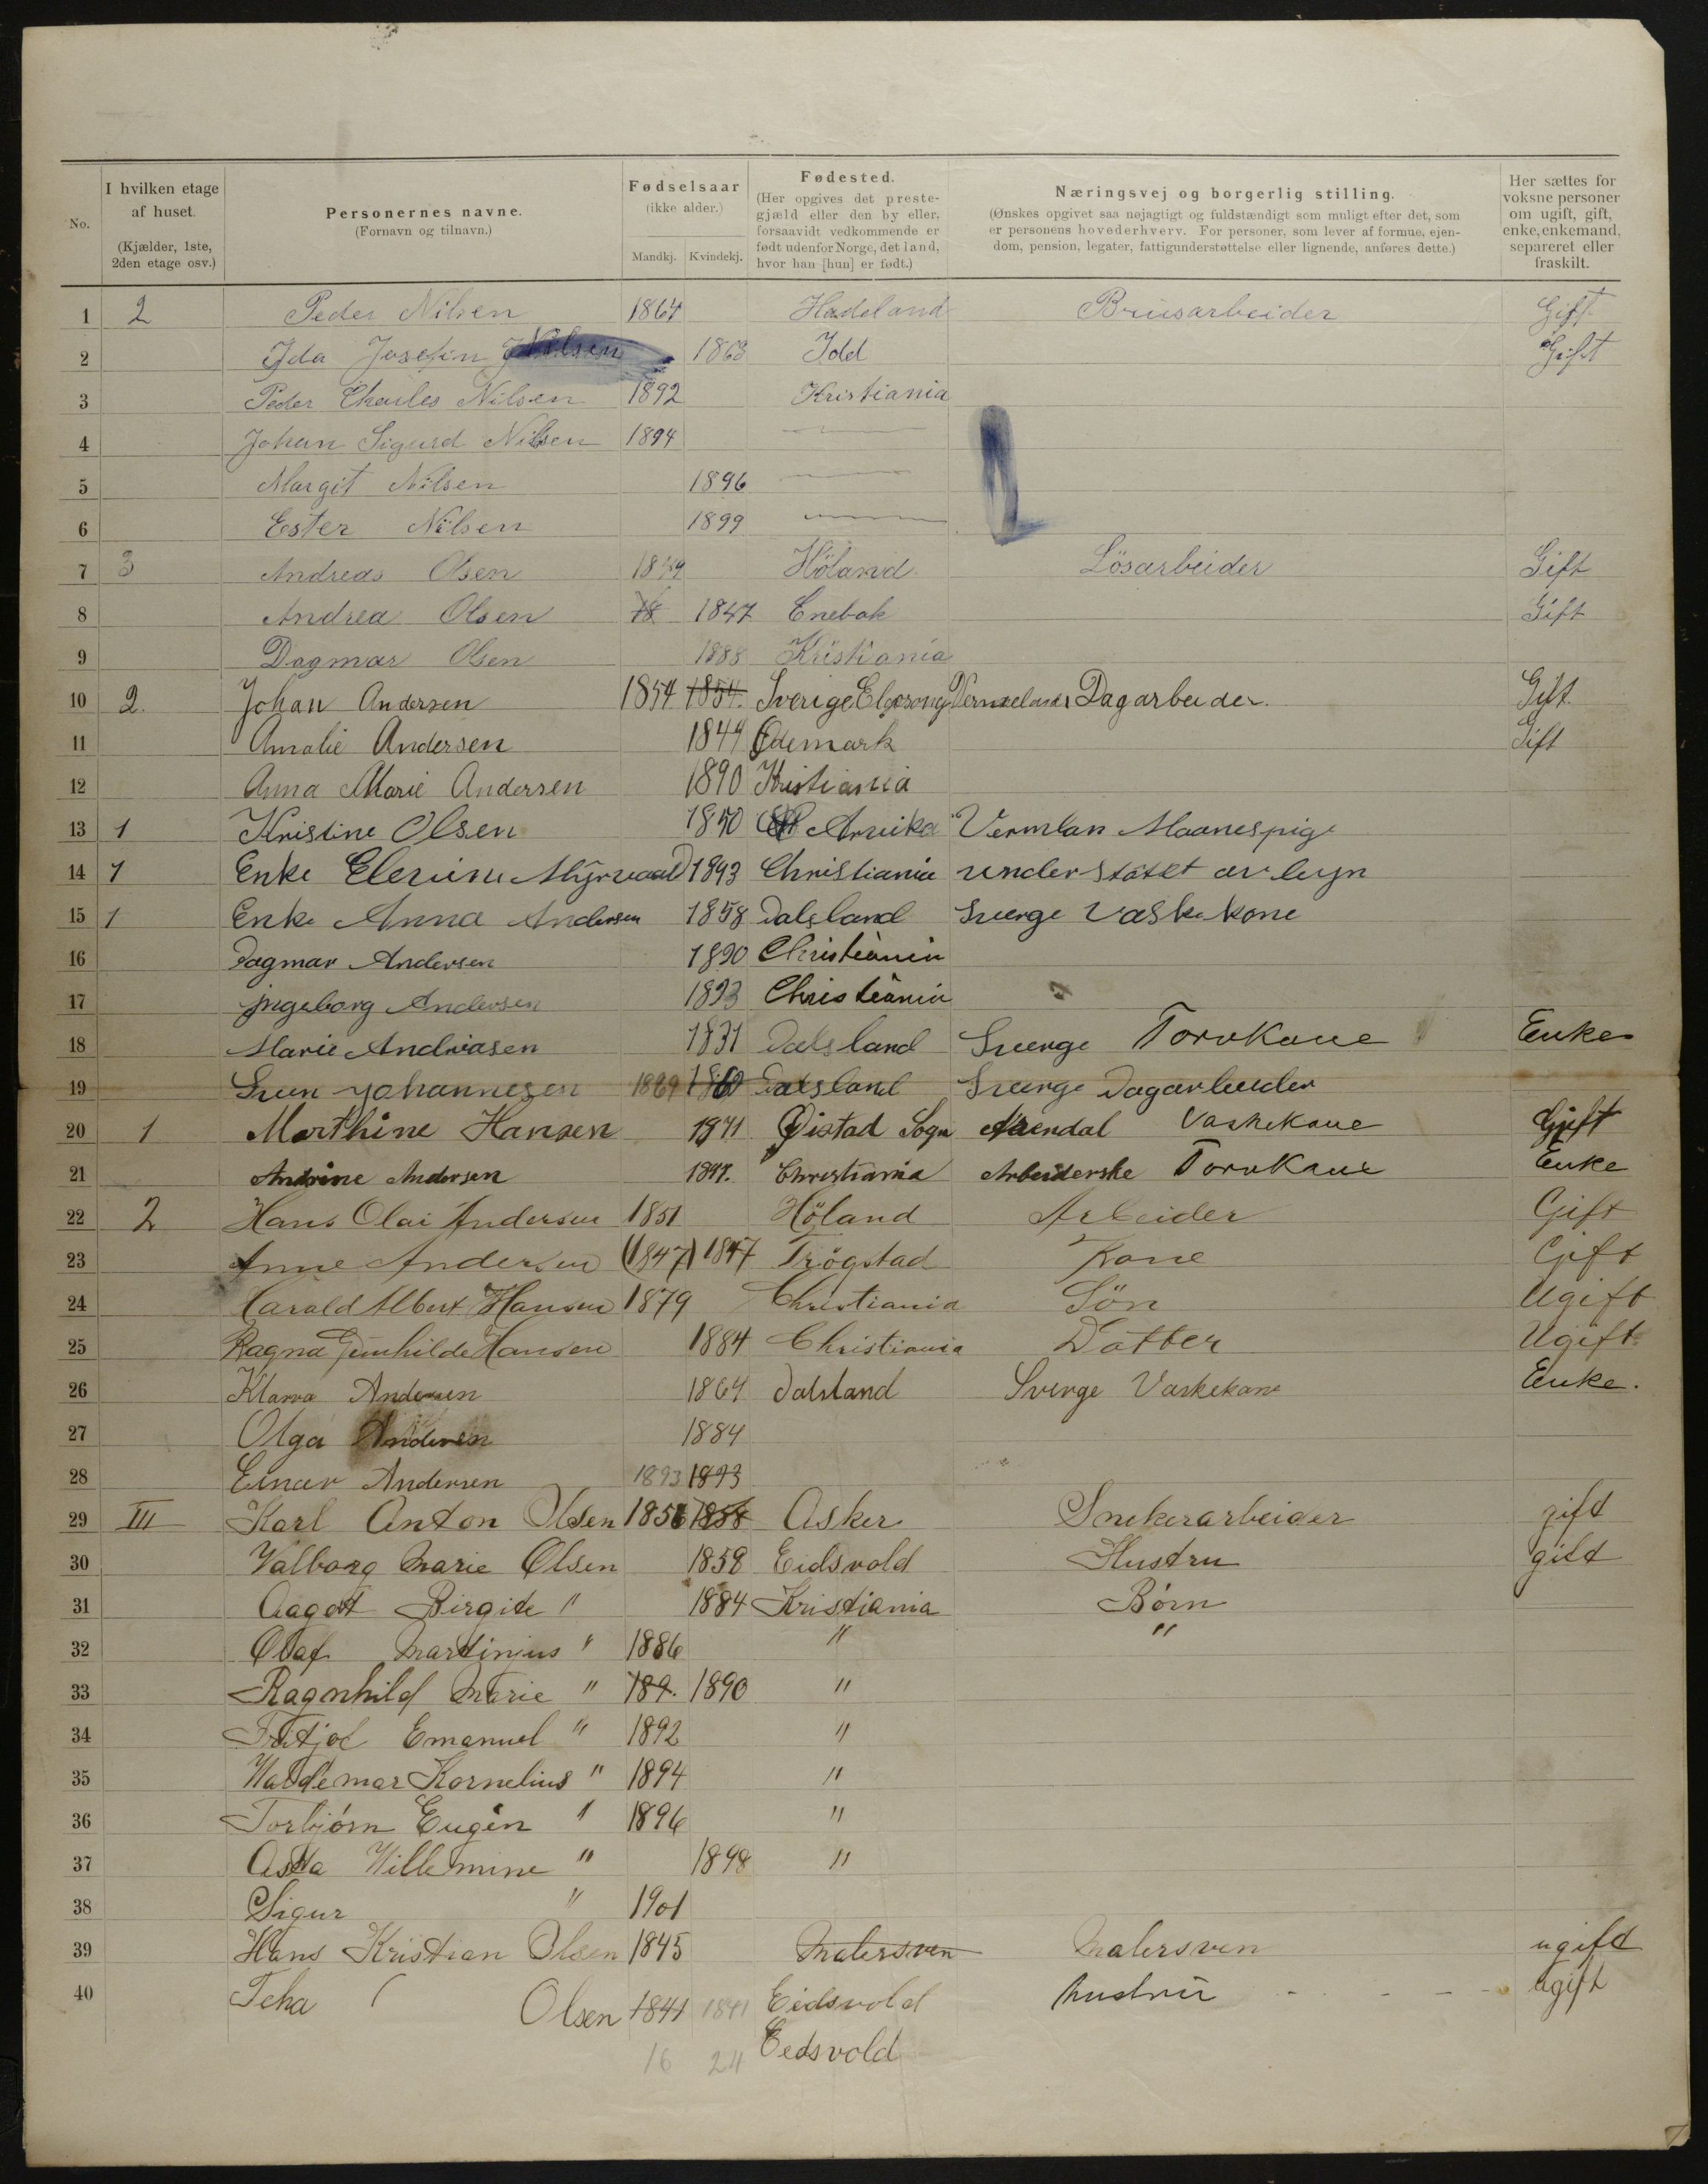 No. I hvilken etage af huset. (Kjælder, 1ste, 2den etage osv.) Personernes navne. (Fornavn og tilnavn.) Fødselsaar (ikke alder.) Mandkj. Kvindekj. Fødested. (Her opgives det prestegjæld eller den by eller, forsaavidt vedkommende er født udenfor Norge, det land, hvor han [hun] er født.) Næringsvej og borgerlig stilling. (Ønskes opgivet saa nøjagtigt og fuldstændigt som muligt efter det, som er personens hovederhverv. For personer, som lever af formue, ejendom, pension, legater, fattigunderstøttelse eller lignende, anføres dette.) Her sættes for voksne personer om ugift, gift, enke, enkemand, separeret eller fraskilt.
1 2 Peder Nilsen 1864 Hadeland Brusarbeider Gift
2 Ida Josefin Nilsen 1863 Idd Gift
3 Peder Charles Nilsen 1892 Kristiania
4 Johan Sigurd Nilsen 1894
5 Margit Nilsen 1896
6 Ester Nilsen 1899
7 3 Andreas Olsen Höland Lösarbeider Gift
8 Andrea Olsen 18 1847 Enebak Gift
9 Dagmar Olsen 1888 Kristiania
10 2. Johan Andersen 1854 1854. Sverige Dagarbeider. Gift.
11 Amalie Andersen 1849 Ödemark Gift
12 Anna Marie Andersen 1890 Kristiania
13 1 Kristine Olsen 1850 Arvika Vermlan
14 1 Enke 1893 Christiania
15 1 Enke Anna Andersen 1858 Dalsland Sverge Vaskekone
16 Dagmar Andersen 1890 Christiania
17 Ingeborg Andersen 1893 Christiania
18 Marie Andriasen 1831 Dalsland Sverge Torvkone Enke
19 Sven Johannesen 1869 Dalsland Sverge Dagarbeider
20 1 Marthine Hansen Öistad Sogn Arendal Vaskekone Gift
21 Andrine Andersen Christiania Arbeiderske Torvkone Enke
22 2 Hans Olai Andersen 1851 Höland Arbeider Gift
23 Anne Andersen (1847) 1847 Trögstad Kone Gift
24 Harald Albert Hansen 1879 Christiania Sön Ugift
25 Ragna Gunhilde Hansen 1884 Christiania Datter Ugift
26 Klara Andersen 1864 Dalsland Sverge Vaskekone Enke.
27 Olga Andersen 1884
28 Einar Andersen 1893 1893
29 III Karl Anton Olsen 1858 Asker Snekerarbeider gift
30 Valborg Marie Olsen 1858 Eidsvold Hustru gift
31 Aagot Birgite " 1884 Kristiania Børn
32 Olaf Martinius " 1886 " "
33 Ragnhild Marie " 189. 1890 "
34 Fritjof Emanuel " 1892 "
35 Waldemar Kornelius " 1894 "
36 Torbjørn Eugén " 1896 "
37 Asta Willemine " 1898 "
38 Sigur " 1901
39 Hans Kristian Olsen 1845 Malersven Malersven ugift
40 Olsen 1841 1841 Eidsvold hustru ugift
16 24 Eedsvold